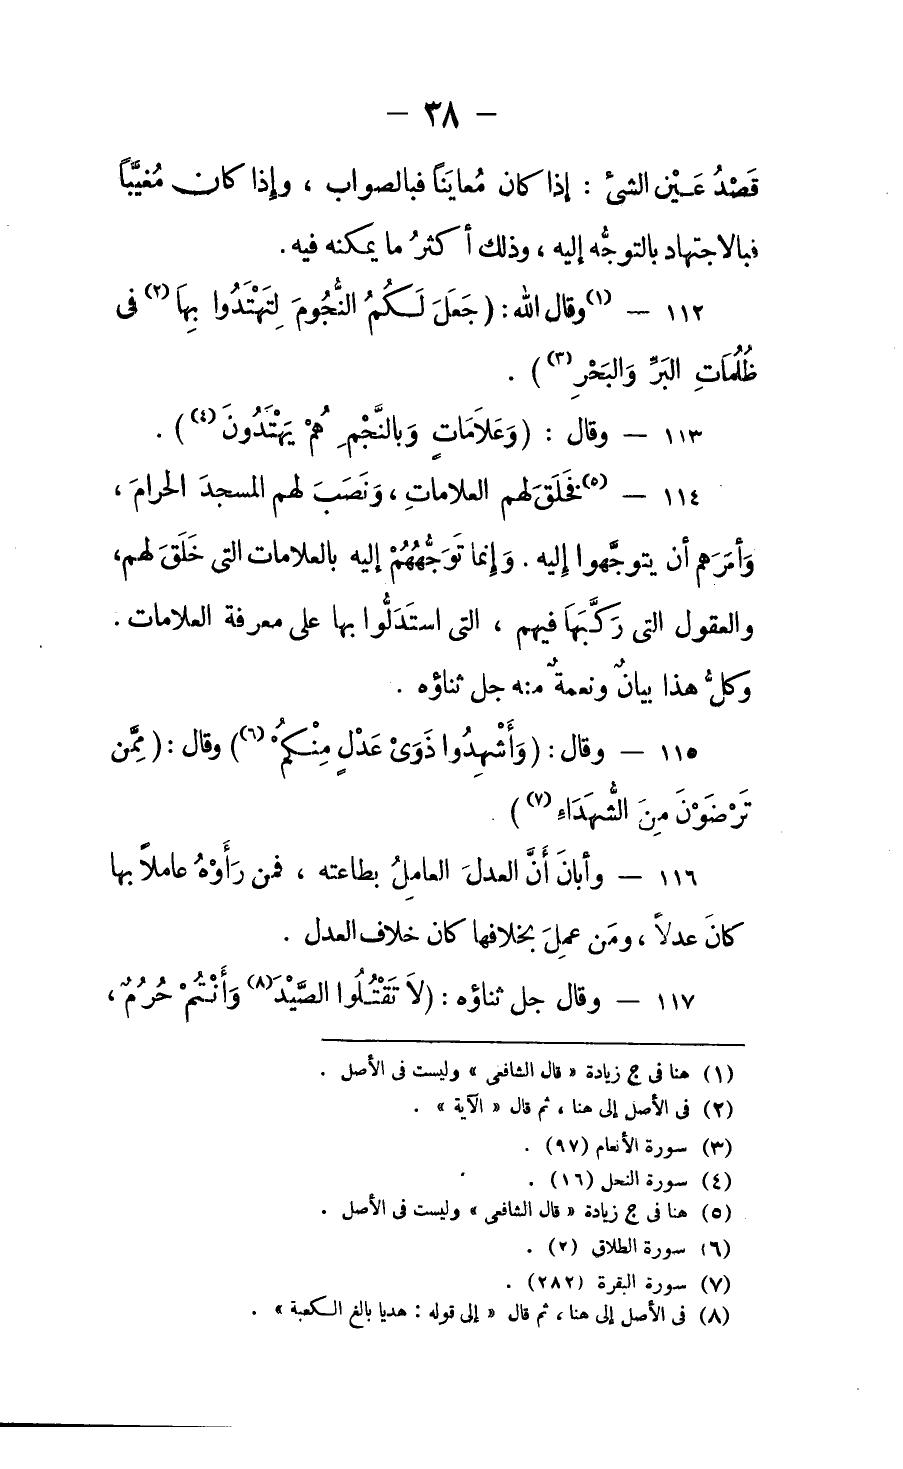 — ٣٨ —
قَصْدُ عَيْنِ الشئ : إذا كان مُعايَنًا فبالصواب ، وإذا كان مُغيَّبًا
فبالاجتهاد بالتوجُّه إليه ، وذلك أكثرُ ما يمكنه فيه .
١١٢ — (١) وقال الله : ( جَعَلَ لَكُمُ النُّجُومَ لِتَهْتَدُوا بِهَا (٢) فى
ظُلُمَاتِ البَرِّ وَالبَحْرِ (٣) ) .
١١٣ — وقال : ( وَعَلاَمَاتٍ وَبِالنَّجْمِ هُمْ يَهْتَدُونَ (٤) ) .
١١٤ — (٥) فَخَلَقَ لهم العلاماتِ ، وَنَصَبَ لهم المسجدَ الحرامَ ،
وَأَمَرَهم أن يتوجَّهوا إليه . وَإِنما تَوَجُّهُهُمْ إليه بالعلامات التى خَلَقَ لهم ،
والعقول التى رَكَّبَهَا فيهم ، التى استَدَلُّوا بها على معرفة العلامات .
وكلُّ هذا بيانٌ ونعمةٌ منه جل ثناؤه .
١١٥ — وقال : ( وَأَشْهِدُوا ذَوَىْ عَدْلٍ مِنْكُمُ (٦) ) وقال : ( مِمَّنْ
تَرْضَوْنَ مِنَ الشُّهَدَاءِ (٧) ) .
١١٦ — وأبانَ أَنَّ العدلَ العاملُ بطاعته ، فمن رَأَوْهُ عاملاً بها
كانَ عدلاً ، ومَن عمِلَ بخلافها كان خلاف العدل .
١١٧ — وقال جل ثناؤه : ( لاَ تَقْتُلُوا الصَّيْدَ (٨) وَأَنْتُمْ حُرُمٌ ،
(١) هنا فى ج زيادة « قال الشافعى » وليست فى الأصل .
(٢) فى الأصل إلى هنا ، ثم قال « الآية » .
(٣) سورة الأنعام (٩٧) .
(٤) سورة النحل (١٦) .
(٥) هنا فى ج زيادة « قال الشافعى » وليست فى الأصل .
(٦) سورة الطلاق (٢) .
(٧) سورة البقرة (٢٨٢) .
(٨) فى الأصل إلى هنا ، ثم قال « إلى قوله : هديا بالغ الكعبة » .